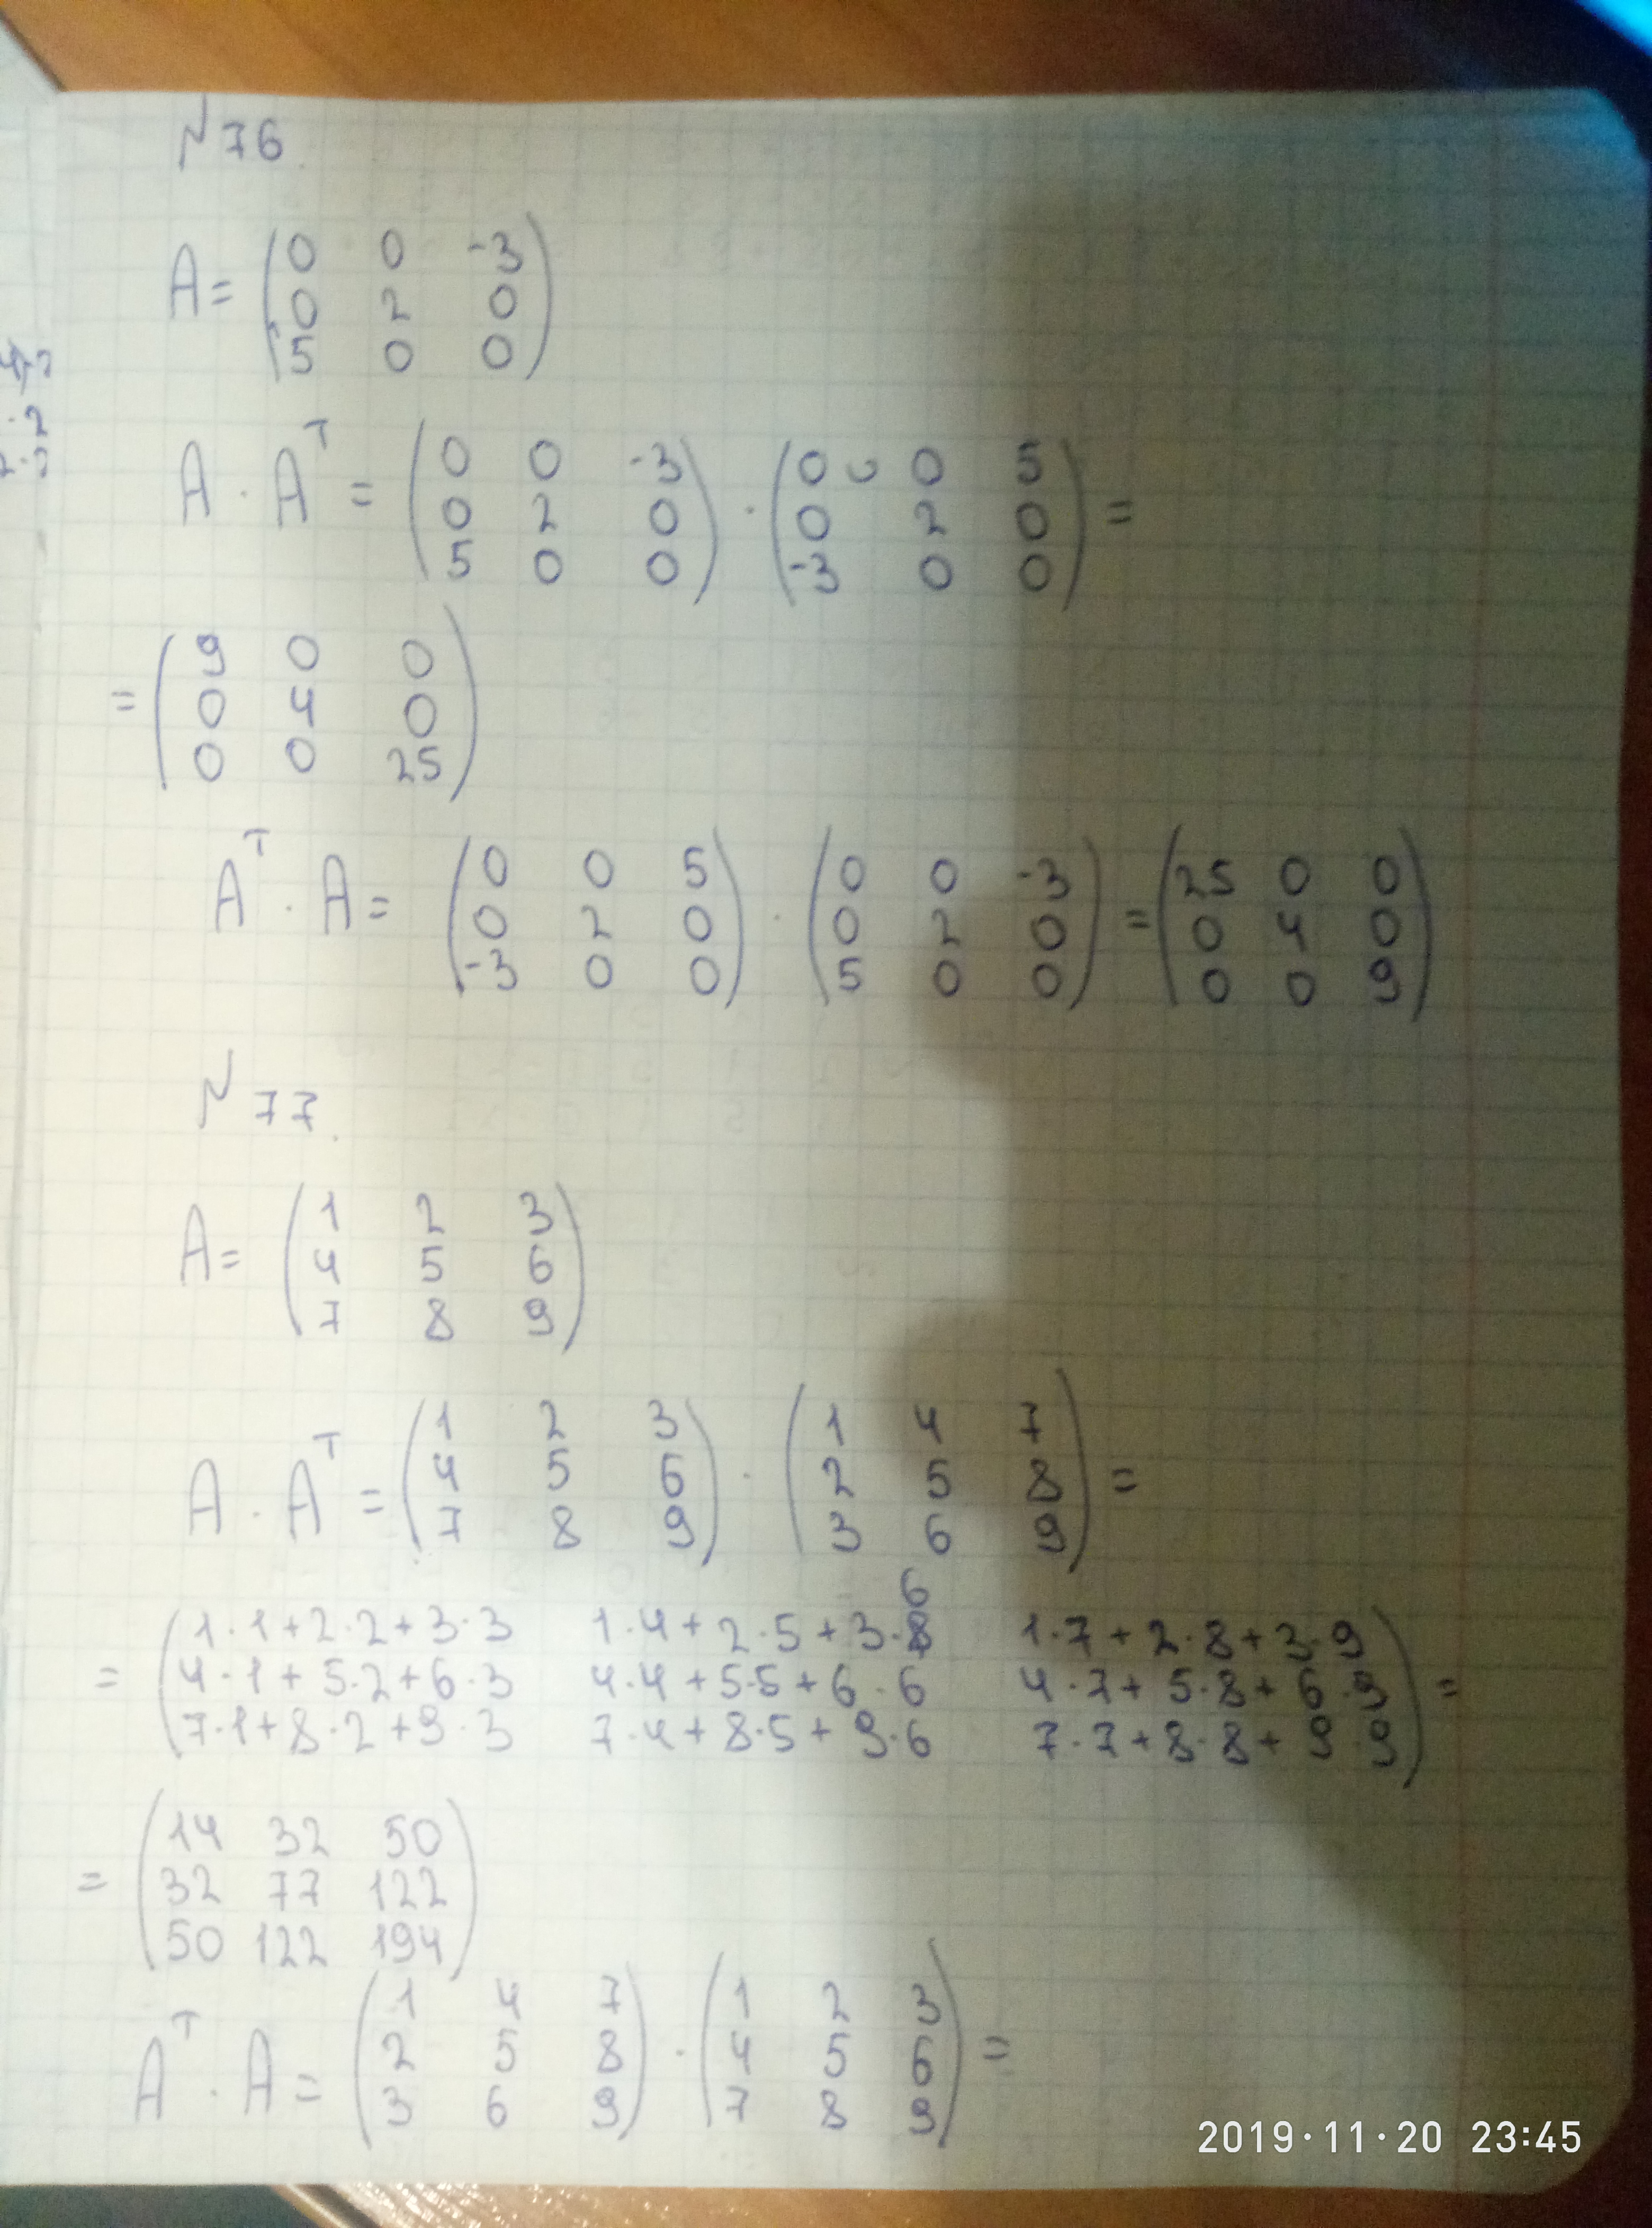 №76.
A = (0 0 -3
0 2 0
5 0 0)
A · Aᵀ = (0 0 -3
0 2 0
5 0 0) · (0 0 5
0 2 0
-3 0 0) =
= (9 0 0
0 4 0
0 0 25)
Aᵀ · A = (0 0 5
0 2 0
-3 0 0) · (0 0 -3
0 2 0
5 0 0) = (25 0 0
0 4 0
0 0 9)
№77.
A = (1 2 3
4 5 6
7 8 9)
A · Aᵀ = (1 2 3
4 5 6
7 8 9) · (1 4 7
2 5 8
3 6 9) =
= (1·1+2·2+3·3 1·4+2·5+3·6 1·7+2·8+3·9
4·1+5·2+6·3 4·4+5·5+6·6 4·7+5·8+6·9
7·1+8·2+9·3 7·4+8·5+9·6 7·7+8·8+9·9) =
= (14 32 50
32 77 122
50 122 194)
Aᵀ · A = (1 4 7
2 5 8
3 6 9) · (1 2 3
4 5 6
7 8 9) =
2019·11·20 23:45